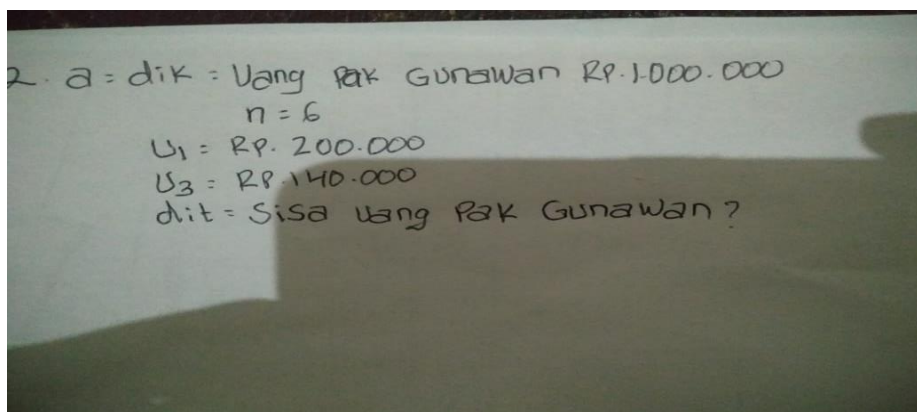 2. a = dik = Uang Pak Gunawan RP. 1.000.000
n = 6
U1 = RP. 200.000
U3 = RP. 140.000
dit = Sisa uang Pak Gunawan?